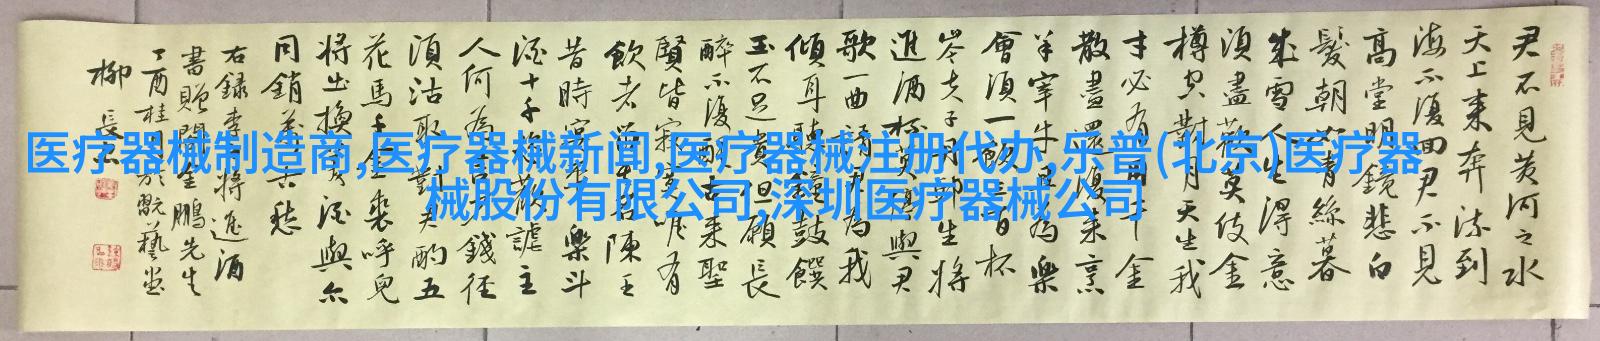 君不見黄河之水
天上来奔流到
海不復回君不見
高堂明鏡悲白
髮朝如青絲暮
成雪人生得意
須盡歡莫使金
樽空對月天生我
才必有用千金
散盡還復来烹
羊宰牛且為樂
會須一飲三百杯
岑夫子丹邱生將
進酒杯莫停與君
歌一曲請君為我
傾耳聽鐘鼓饌
玉不足貴但願長
醉不復醒古来聖
賢皆寂寞唯有
飲者留其名陳王
昔時宴平樂斗
酒十千恣歡謔主
人何為言少錢徑
須沽取對君酌五
花馬千金裘呼兒
將出換美酒與尔
同銷萬古愁
右録李白將進酒
書贈金鵬先生
丁酉桂月於翫藝堂
柳長
医疗器械制造商,医疗器械新闻,医疗器械注册代办,乐普(北京)医疗器
械股份有限公司,深圳医疗器械公司